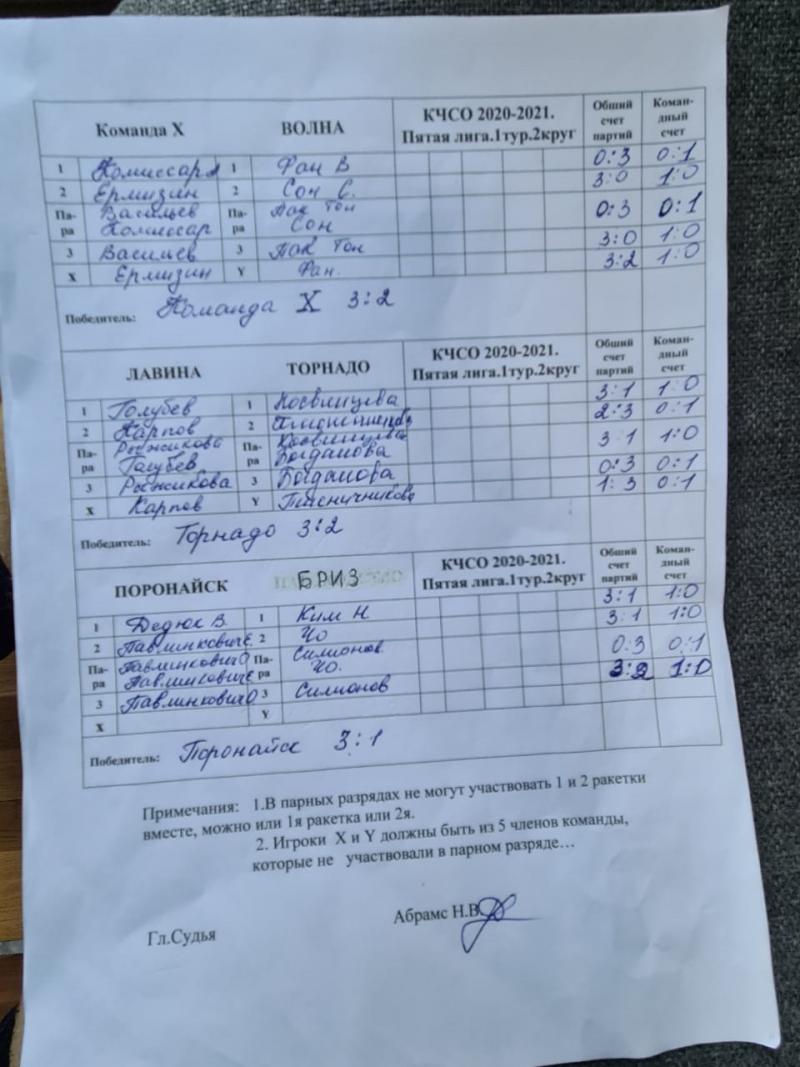 Команда X ВОЛНА КЧСО 2020-2021. Пятая лига.1тур.2круг Общий счет партий Коман-дный счет
1 Комиссар 1 Фан В 0:3 0:1
2 Ермизин 2 Сон С. 3:0 1:0
Па-ра Васильев Комиссар Па-ра Пак Тон Сон 0:3 0:1
3 Васильев 3 Пак Тон 3:0 1:0
X Ермизин Y Фан. 3:2 1:0
Победитель: Команда X 3:2
ЛАВИНА ТОРНАДО КЧСО 2020-2021. Пятая лига.1тур.2круг Общий счет партий Коман-дный счет
1 Голубев 1 3:1 1:0
2 Карпов 2 2:3 0:1
Па-ра Рыжикова Голубев Па-ра Богданова 3 1 1:0
3 Рыжикова 3 Богданова 0:3 0:1
X Карпов Y Пшеничникова 1:3 0:1
Победитель: Торнадо 3:2
ПОРОНАЙСК БРИЗ КЧСО 2020-2021. Пятая лига.1тур.2круг Общий счет партий Коман-дный счет
1 Дедюк В. 1 Ким Н 3:1 1:0
2 Павлинкович Е 2 Чо 3:1 1:0
Па-ра Павлинкович О Павлинкович Е Па-ра Симионов Чо. 0:3 0:1
3 Павлинкович О 3 Симионов 3:2 1:0
X Y
Победитель: Поронайск 3:1
Примечания: 1.В парных разрядах не могут участвовать 1 и 2 ракетки
вместе, можно или 1я ракетка или 2я.
2. Игроки X и Y должны быть из 5 членов команды,
которые не участвовали в парном разряде…
Абрамс Н.В.
Гл.Судья